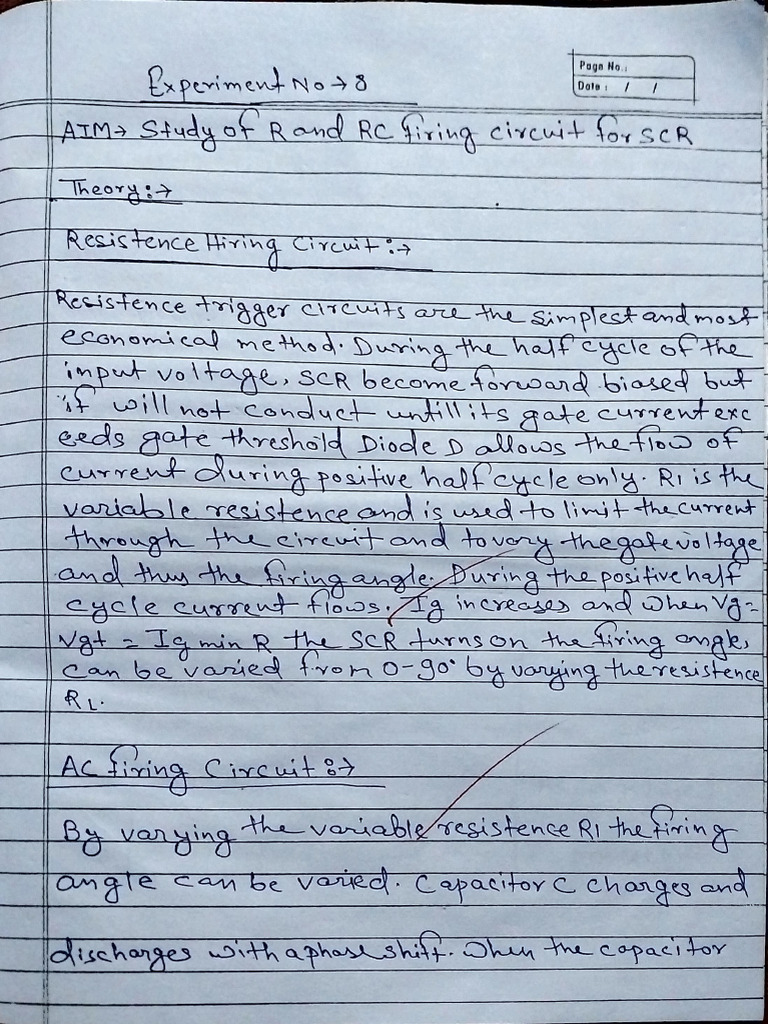 Experiment No → 8
Page No.:
Date: / /
AIM → Study of R and RC firing circuit for SCR
Theory :→
Resistence Hiring Circuit :→
Resistence trigger circuits are the simplest and most
economical method. During the half cycle of the
input voltage, SCR become forward biased but
it will not conduct untill its gate current exc
eeds gate threshold Diode D allows the flow of
current during positive half cycle only. R1 is the
variable resistence and is used to limit the current
through the circuit and to vary the gate voltage
and thus the firing angle. During the positive half
cycle current flows. Ig increases and when Vg =
Vgt = Ig min R the SCR turns on the firing angle,
can be varied from 0-90° by varying the resistence
R1.
AC firing Circuit :→
By varying the variable resistence R1 the firing
angle can be varied. Capacitor C charges and
discharges with a phase shift. When the capacitor